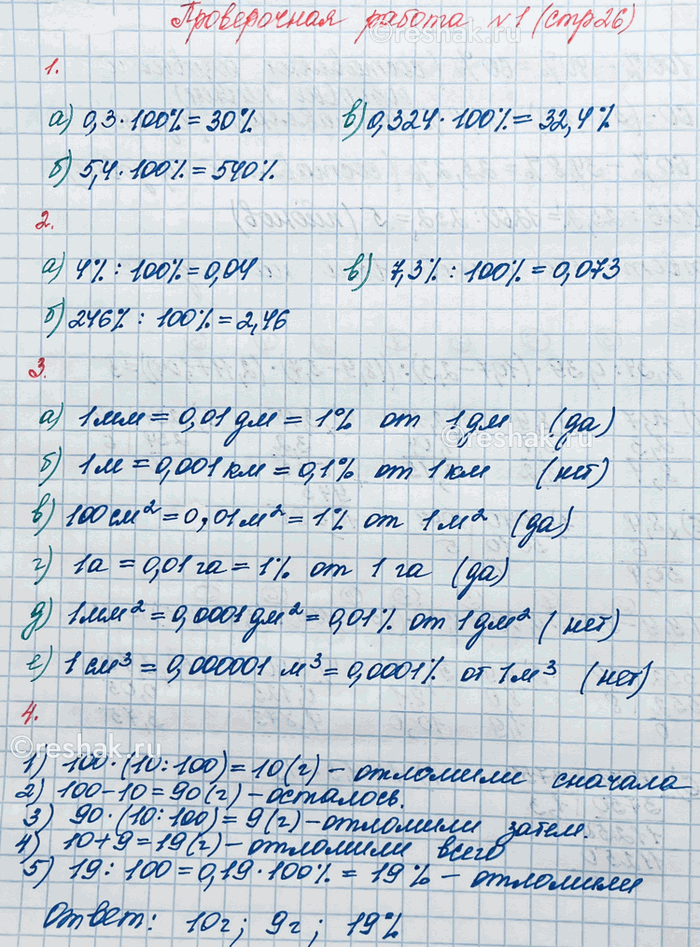 Проверочная работа №1 (стр26)
1.
а) 0,3·100%=30% в) 0,324·100%=32,4%
б) 5,4·100%=540%
2.
а) 4% : 100%=0,04 в) 7,3% : 100%=0,073
б) 246% : 100%=2,46
3.
а) 1мм=0,01дм=1% от 1дм (да)
б) 1м=0,001км=0,1% от 1км (нет)
в) 100см²=0,01м²=1% от 1м² (да)
г) 1а=0,01га=1% от 1га (да)
д) 1мм²=0,0001дм²=0,01% от 1дм² (нет)
е) 1см³=0,000001м³=0,0001% от 1м³ (нет)
4.
1) 100·(10:100)=10(г) - отломили сначала
2) 100-10=90(г) - осталось.
3) 90·(10:100)=9(г) - отломили затем.
4) 10+9=19(г) - отломили всего
5) 19:100=0,19·100%=19% - отломили
Ответ: 10г; 9г; 19%
©reshak.ru
©reshak.ru
©reshak.ru